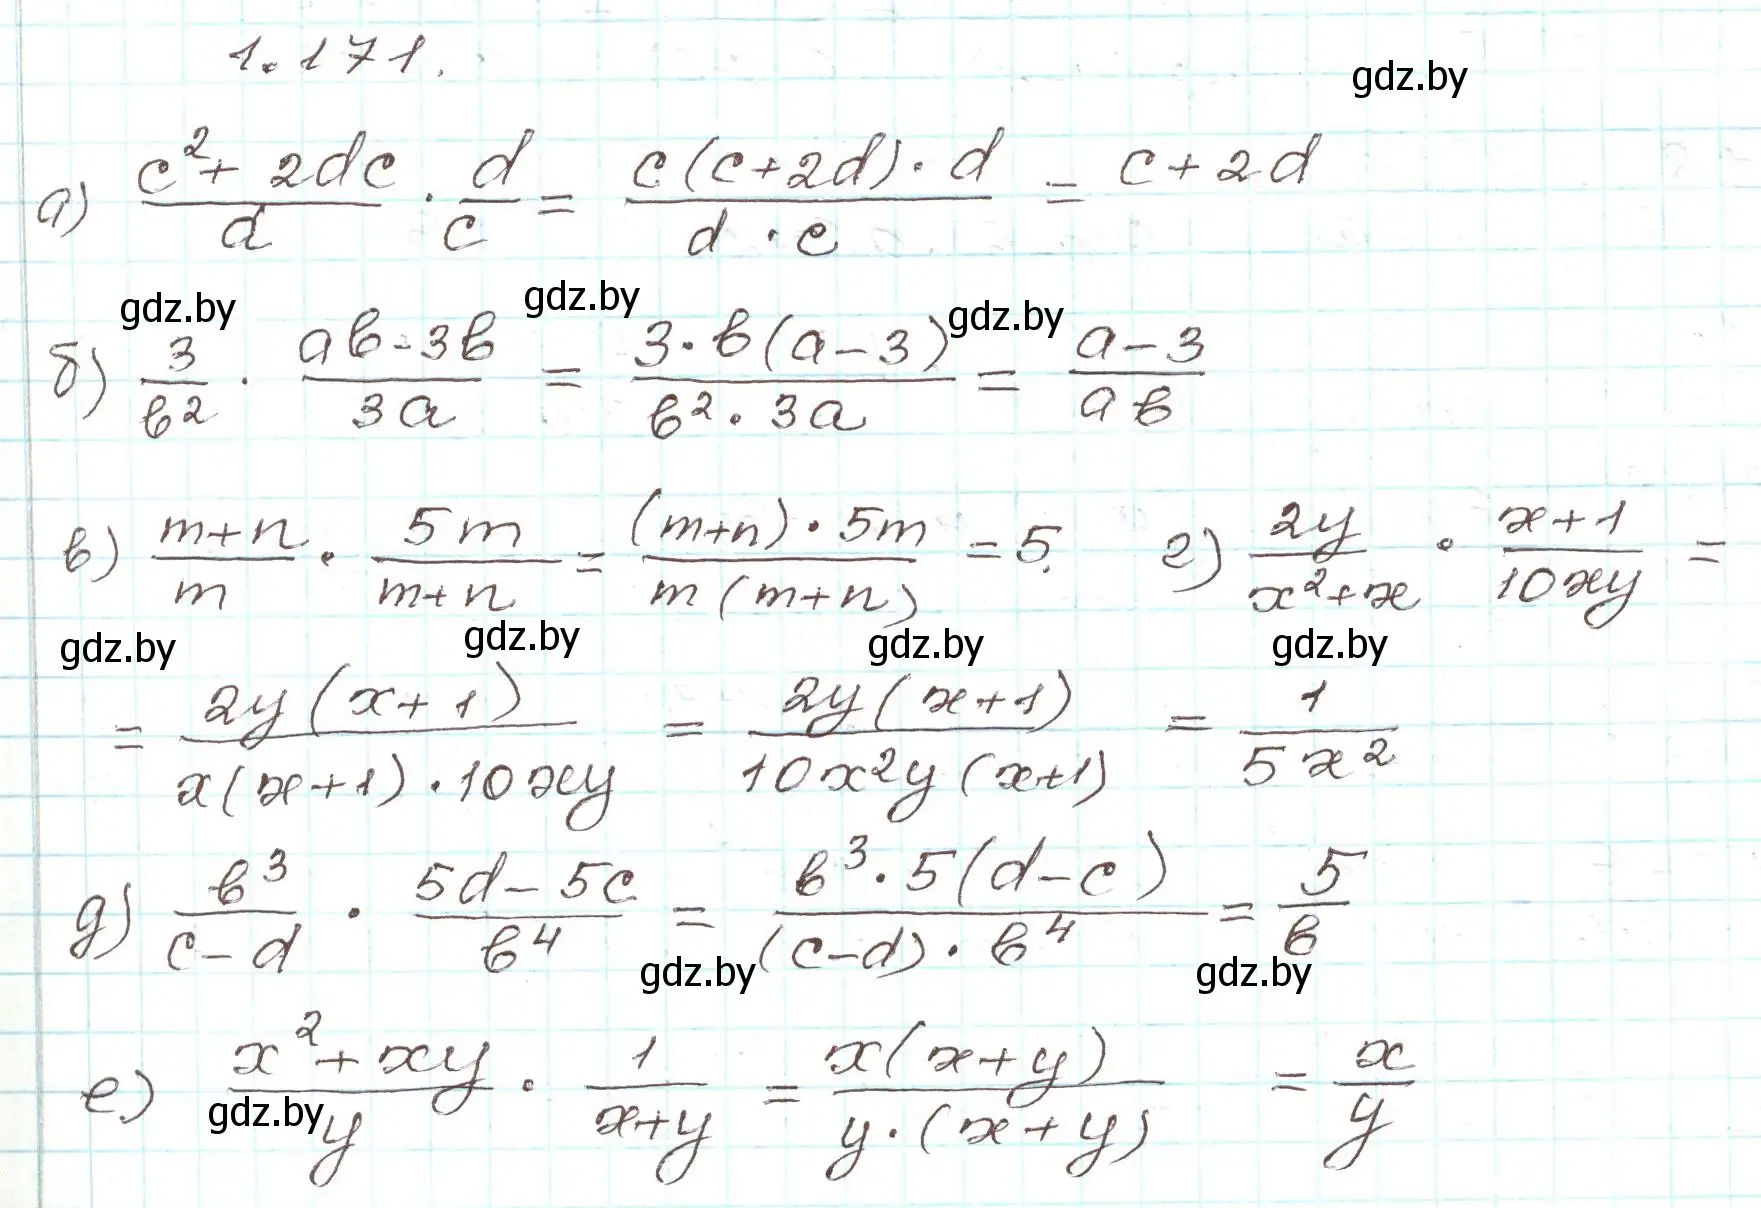 1.171.
gdz.by
а) \frac{c^2+2dc}{d} · \frac{d}{c} = \frac{c(c+2d)·d}{d·c} = c+2d
gdz.by gdz.by gdz.by
б) \frac{3}{b^2} · \frac{ab-3b}{3a} = \frac{3·b(a-3)}{b^2·3a} = \frac{a-3}{ab}
в) \frac{m+n}{m} · \frac{5m}{m+n} = \frac{(m+n)·5m}{m(m+n)} = 5. г) \frac{2y}{x^2+x} · \frac{x+1}{10xy} =
gdz.by gdz.by gdz.by gdz.by
= \frac{2y(x+1)}{x(x+1)·10xy} = \frac{2y(x+1)}{10x^2y(x+1)} = \frac{1}{5x^2}
д) \frac{b^3}{c-d} · \frac{5d-5c}{b^4} = \frac{b^3·5(d-c)}{(c-d)·b^4} = \frac{5}{b}
gdz.by gdz.by
е) \frac{x^2+xy}{y} · \frac{1}{x+y} = \frac{x(x+y)}{y·(x+y)} = \frac{x}{y}
gdz.by